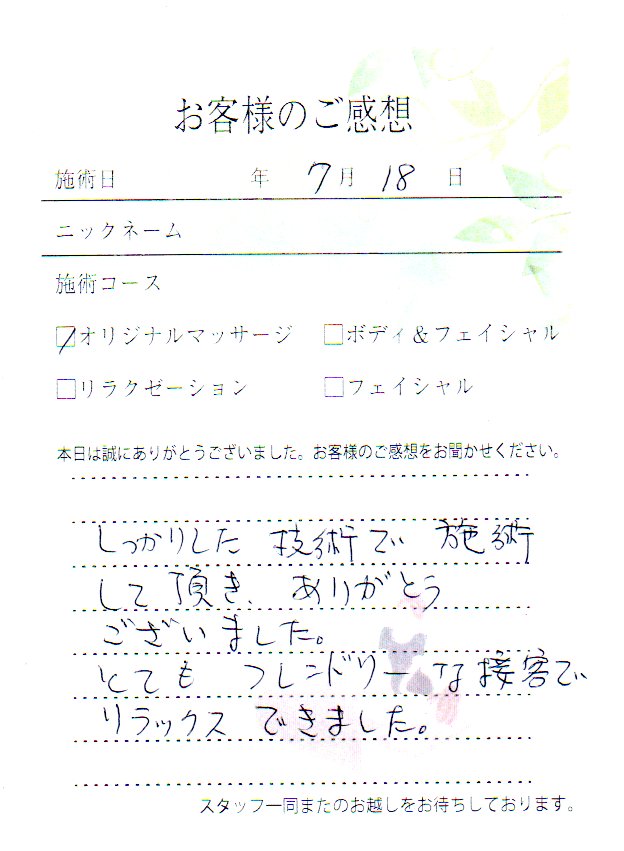 お客様のご感想
施術日 年 7月 18 日
ニックネーム
施術コース
☑オリジナルマッサージ □ボディ＆フェイシャル
□リラクゼーション □フェイシャル
本日は誠にありがとうございました。お客様のご感想をお聞かせください。
しっかりした 技術で 施術
して頂き、ありがとう
ございました。
とても フレンドリーな接客で
リラックス できました。
スタッフ一同またのお越しをお待ちしております。